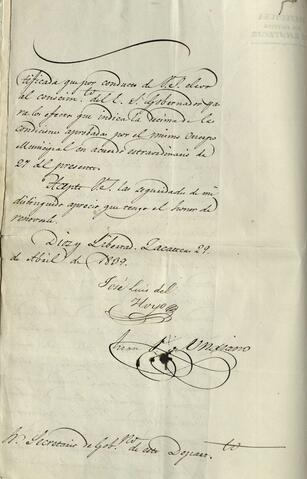 tificada que por conducto de V.S. elevo
al conocim.to del E. S. Gobernador pa
ra los efectos que indica la decima de las
condiciones aprobadas por el mismo Cuerpo
Municipal en acuerdo extraordinario de
27 del presente.
Acepte V.S. las seguridades de mi
distinguido aprecio que tengo el honor de
renovarle.
Dios y Libertad. Zacatecas 29.
de Abril de 1839.
José Luis del
Hoyo
Juan
Sr. Secretario de Gob.no de este Depar.to